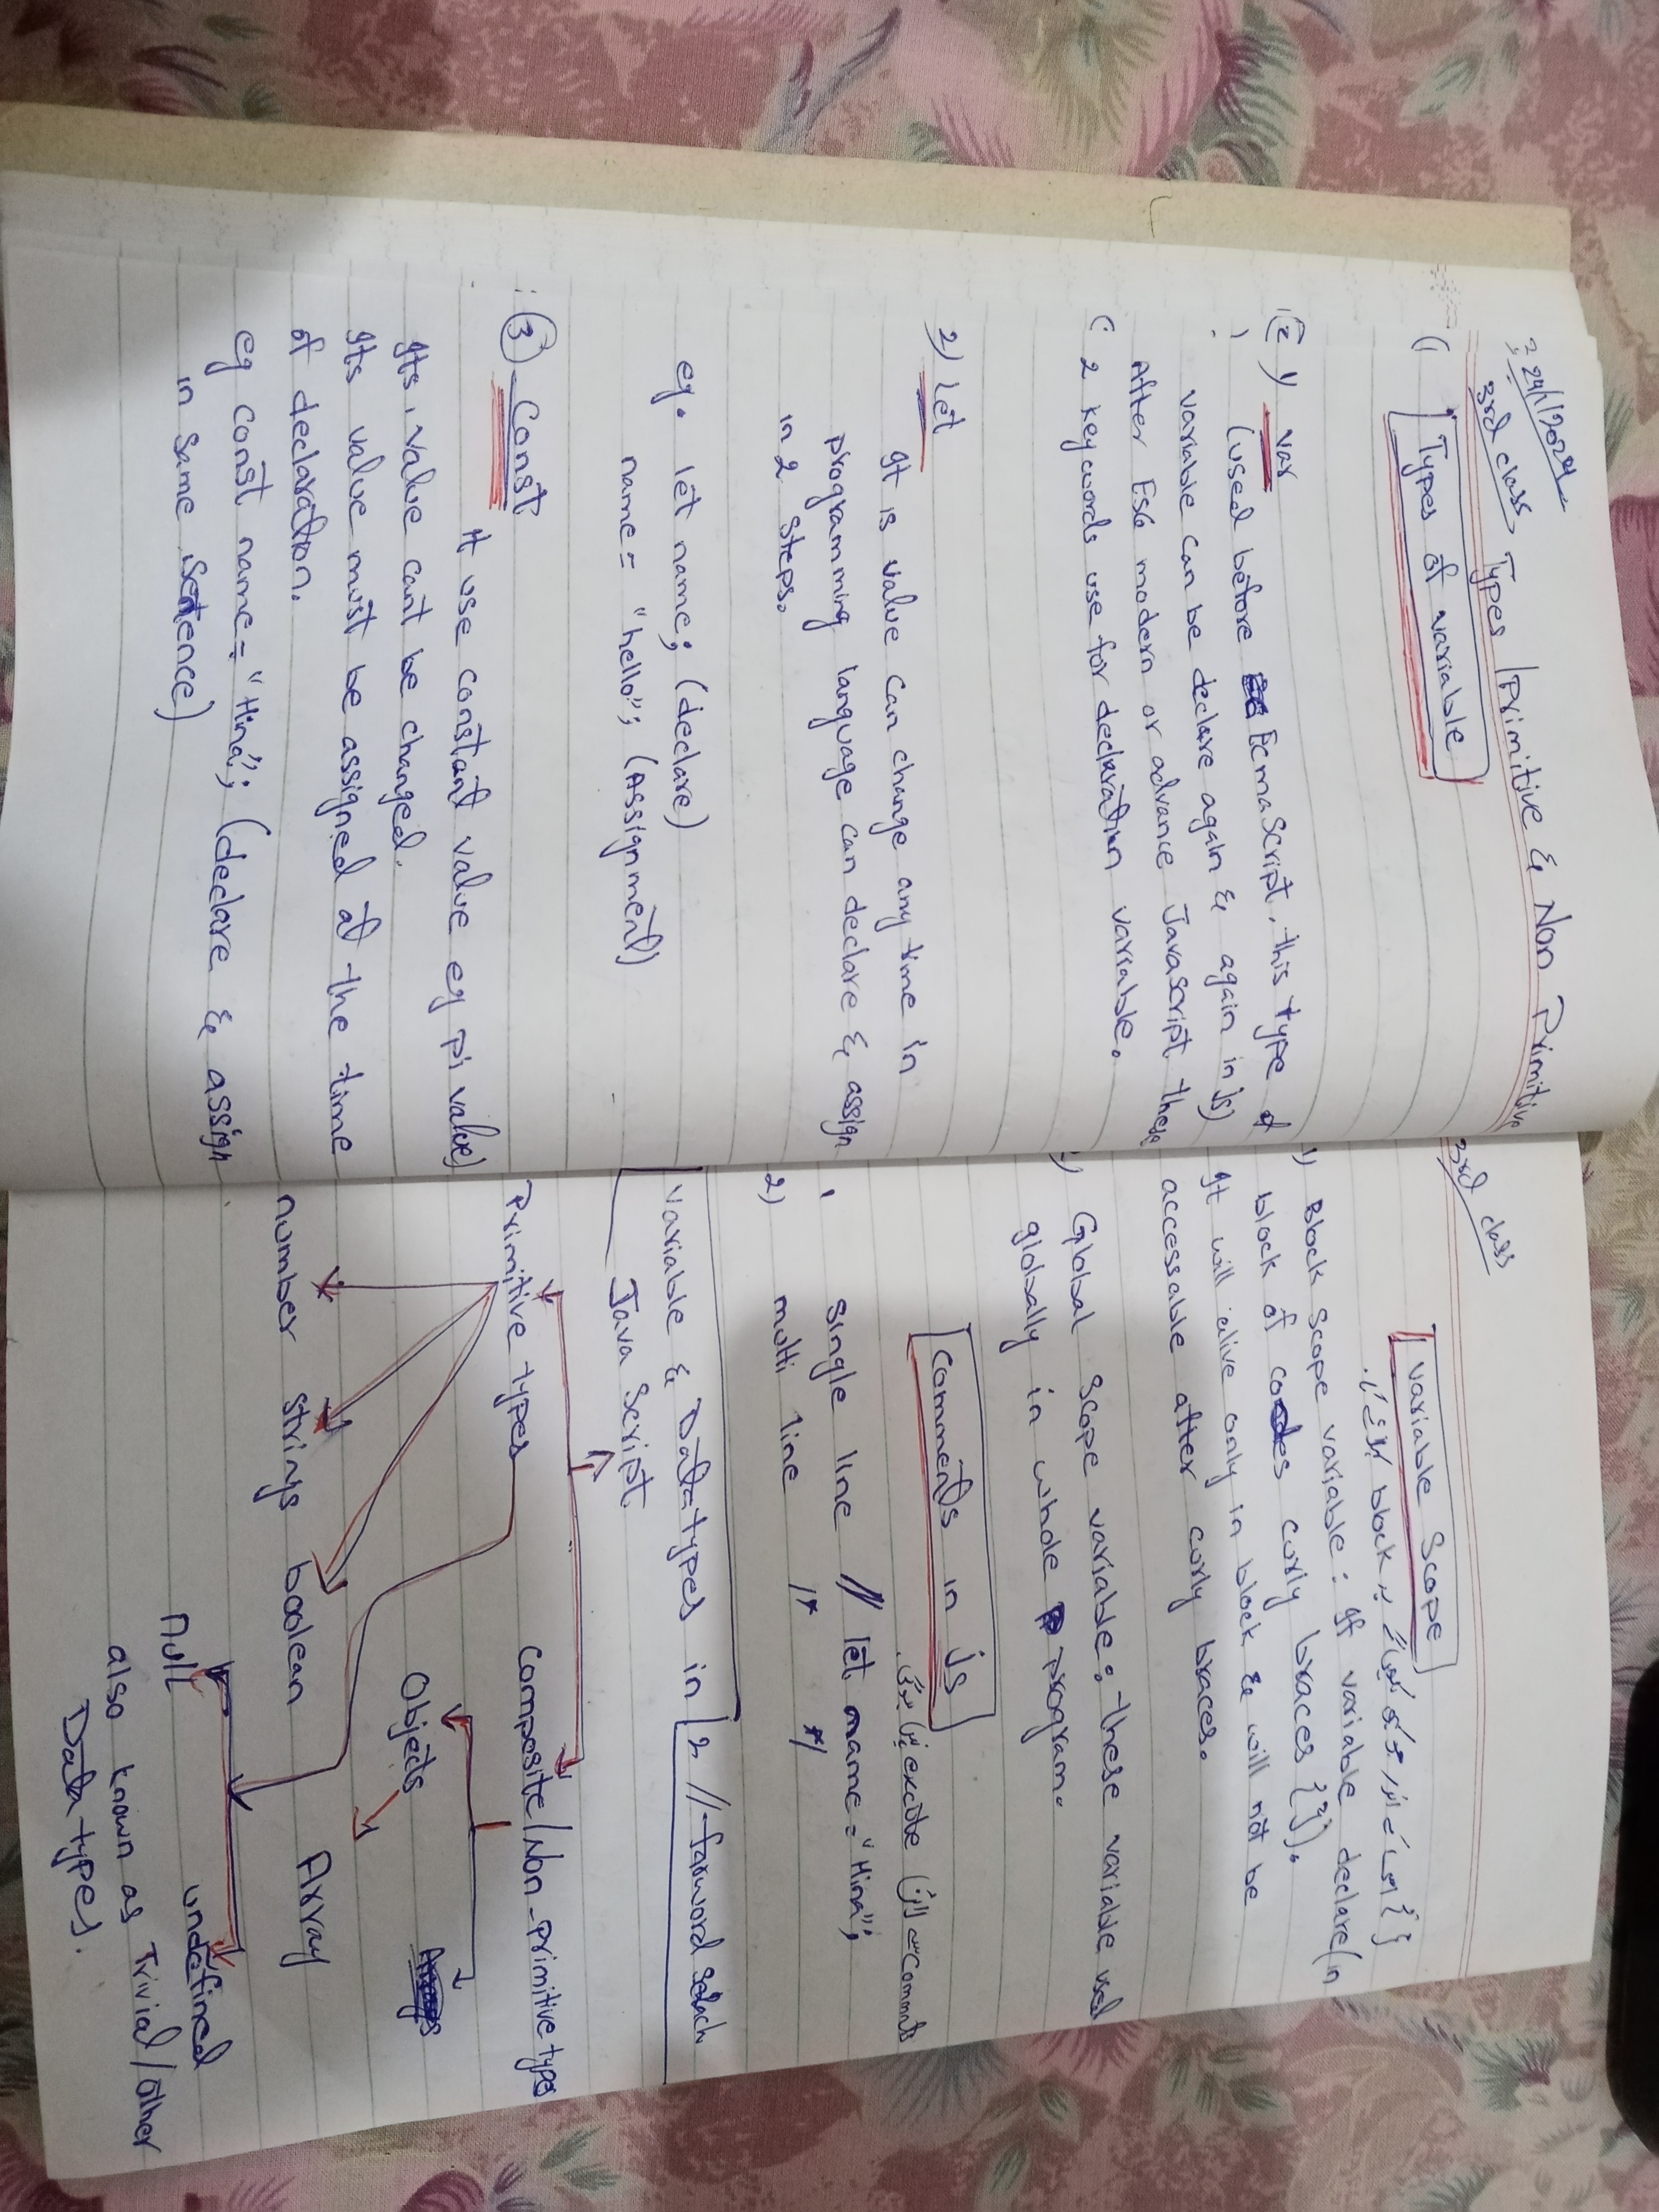 24/1/2024
3rd class Types / Primitive & Non Primitive
Types of variable
1) var
(used before EcmaScript, this type of
variable can be declare again & again in js)
After ES6 modern or advance JavaScript these
2 keywords use for declaration variable.
2) Let
It is value can change any time in
programming language can declare & assign
in 2 steps.
eg. let name; (declare)
name = "hello"; (Assignment)
3) Const
It use constant value eg pi value)
Its value cant be changed.
Its value must be assigned at the time
of declaration.
eg const name = "Hina"; (declare & assign
in same Sentence)
3rd class
Variable Scope
block { }
1) Block scope variable: If variable declare (in
block of codes curly braces { }).
It will alive only in block & will not be
accessable after curly braces.
Global scope variable: these variable used
globally in whole program.
Comments in js
execute Comments
Single line // let name = "Hina";
2) multi line /* */
Variable & Datatypes in
2 // forword selach
Java Script
Primitive types Composite/Non-primitive types
Objects
number strings boolean Array
null undefined
also known as Trivial/other
Data types.